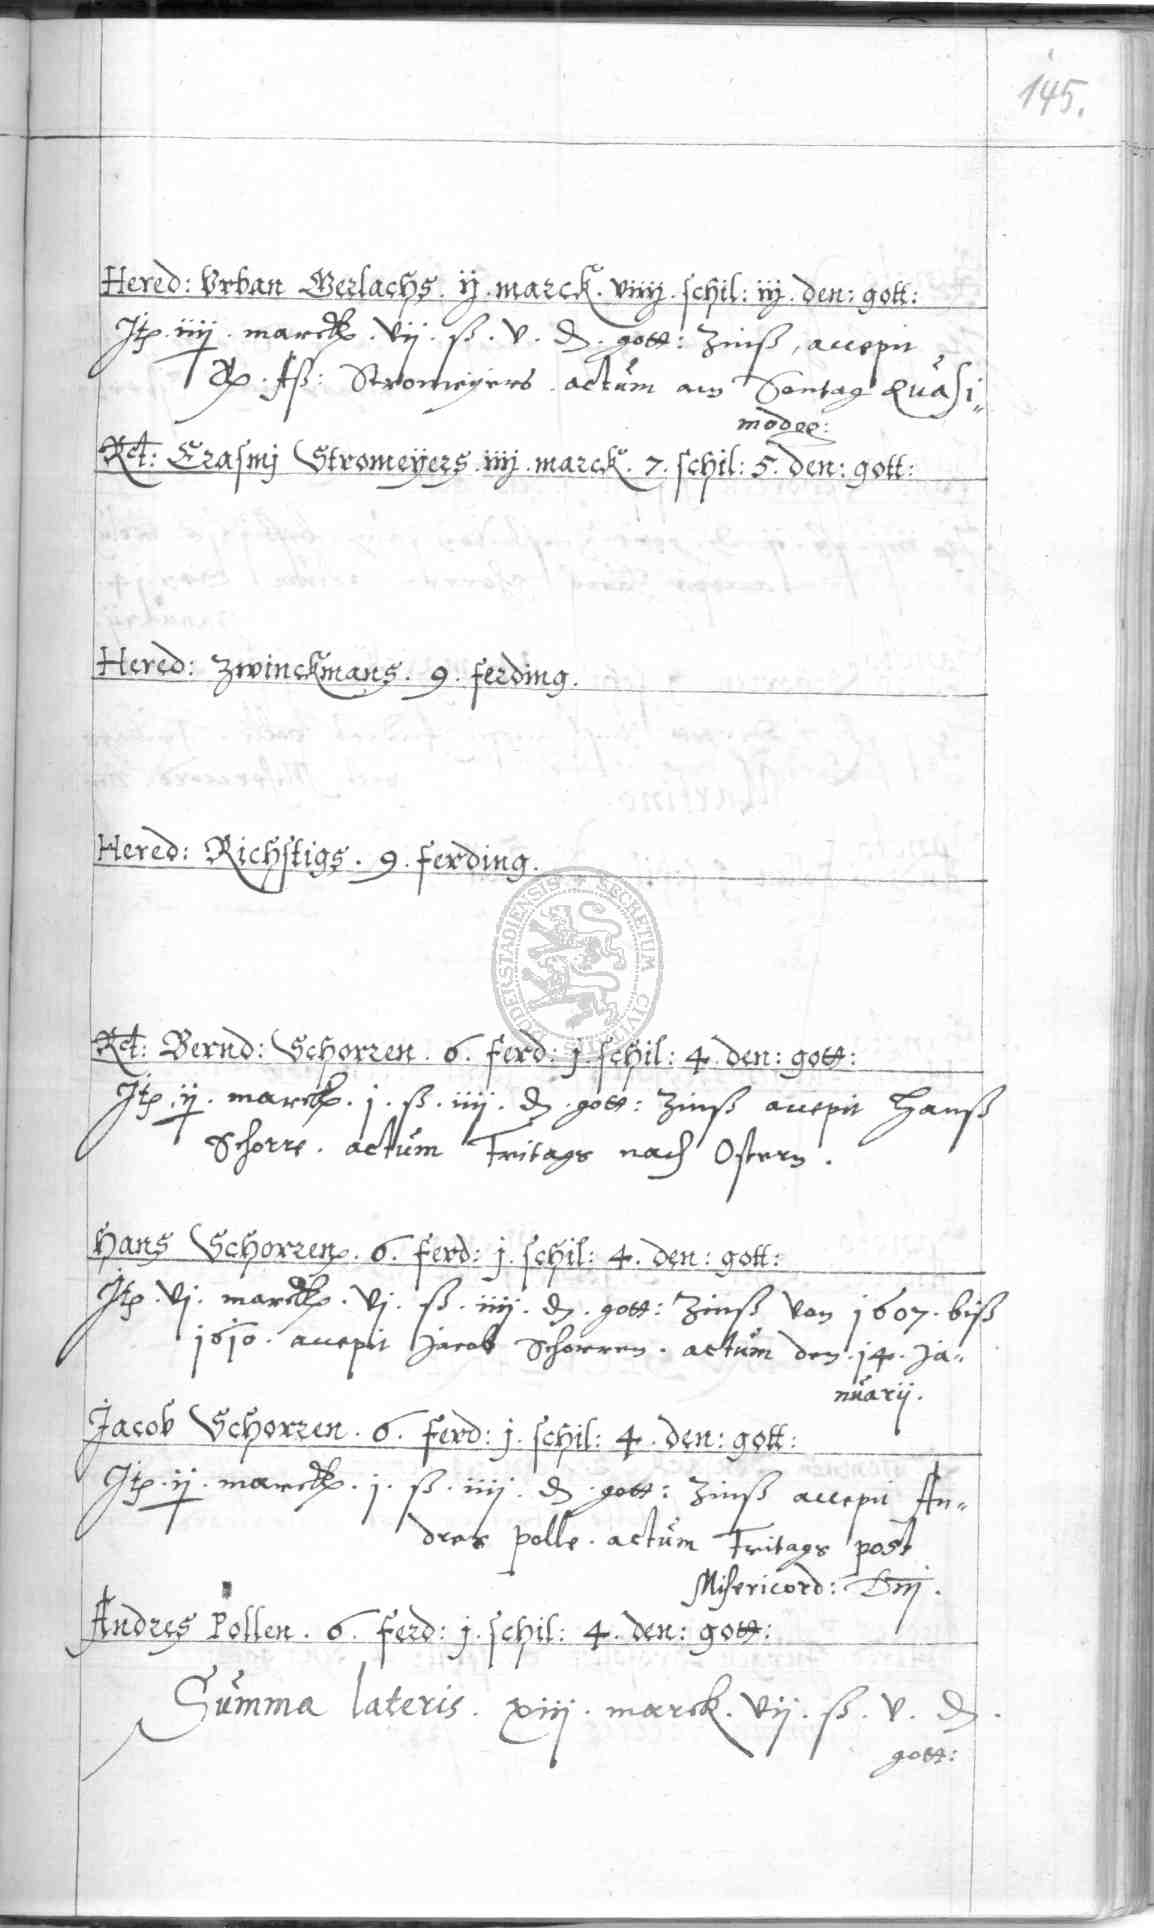 145.
Hered: Vrban Gerlachs. ij. marck. viiij. schil: iij. den: gott:
Itp. iiij. marck. vij. ß. v. d. gott: Zinß, accepit
Stromeÿers. actum am Sontag Quasi„
modog:
Rct: Erasmj Stromeÿers. iiij. marck. 7. schil: 5. den: gott:
Hered: Zwinckmans. 9. ferding.
Hered: Richstigs. 9. ferding.
SECRETUM CIVITATIS DUDERSTADIENSIS
Rct: Bernd: Schorren. 6. ferd: j. schil: 4. den: gott:
Itp. ij. marck. j. ß. iiij. d. gott: Zinß accepit Hanß
Schorre. actum Fritags nach Ostern.
Hans Schorren. 6. ferd: j. schil: 4. den: gott:
Itp. vj. marck. vj. ß. iiij. d. gott: Zinß von 1607. biß
1610. accepit Jacob Schorren. actum den. 14. Ja„
nuarij.
Jacob Schorren. 6. ferd: j. schil: 4. den: gott:
Itp. ij. marck. j. ß. iiij. d. gott: Zinß accepit An„
dres Polle. actum Fritags post
Misericord: Dnj.
Andres Pollen. 6. ferd: j. schil: 4. den: gott:
Summa lateris. xiij. marck. vij. ß. v. d.
gott: